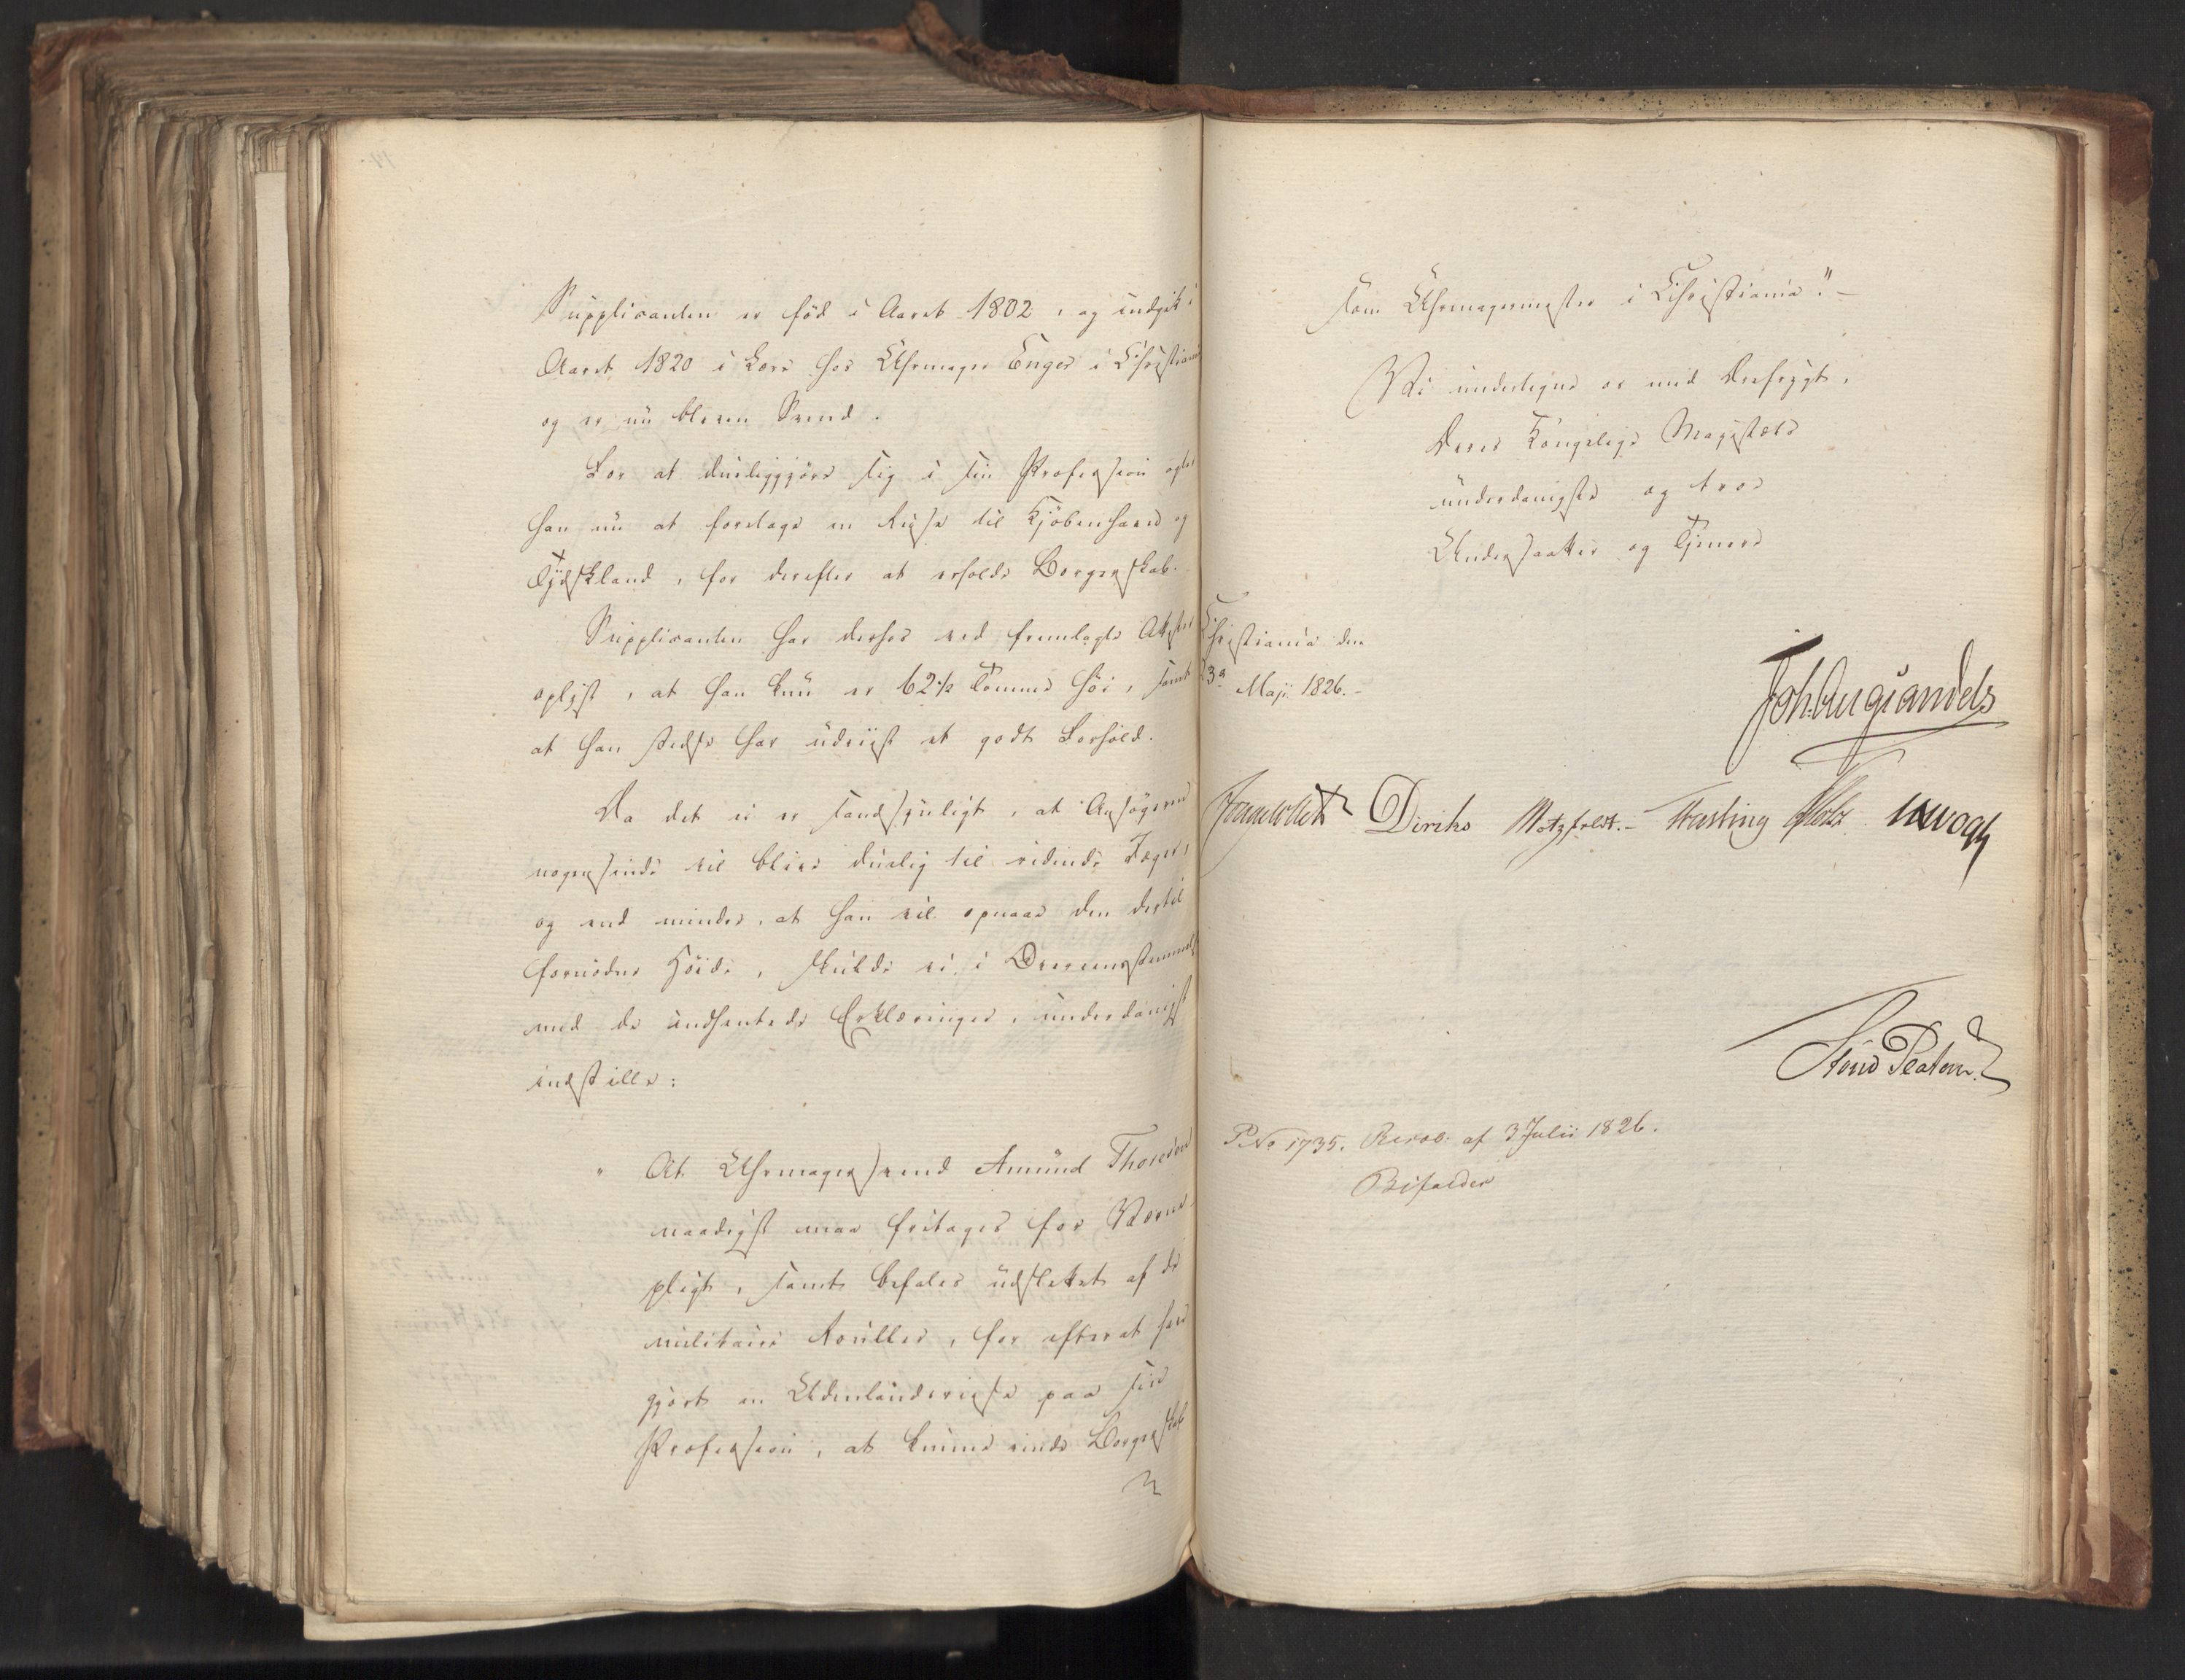 Supplicanten er föd i Aaret 1802, og indgik i
Aaret 1820 i Lære hos Uhrmager Enger i Christiania
og er nu bleven Svend.
For at dueliggjøre sig i sin Profession agter
han nu at foretage en Reise til Kjöbenhavn og
Tydskland, for derefter at erholde Borgerskab.
Supplicanten har derhos ved fremlagte Attester
oplyst, at han kun er 62½ Tomme höi, samt
at han stedse har udviist et godt Forhold.
Da det ei er sandsynligt, at Ansögeren
nogensinde vil blive duelig til ridende Jæger,
og end mindre, at han vil opnaae den dertil
fornødne Höide, skulde vi, i Overeensstemmelse
med de indhentede Erklæringer, underdanigst
indstille:
" At Uhrmagersvend Amund Thoresen
naadigst maa fritages for Værne-
pligt, samt befales udslettet af de
militaire Rouller, for efterat have
gjort en Udenlandsreise paa sin
Profession, at kunne vinde Borgerskab
som Uhrmagermester i Christiania". –
Vi undertegne os med Ærefrygt,
Deres Kongelige Majestæts
underdanigste og troe
Undersaatter og Tjenere
Christiania den
23de Maji 1826. –
Joh. Aug. Sandels
Diriks Motzfeldt. – Fasting Holst
Krogh
P. No 1735. Resol. af 3 Julii 1826.
Bifaldes